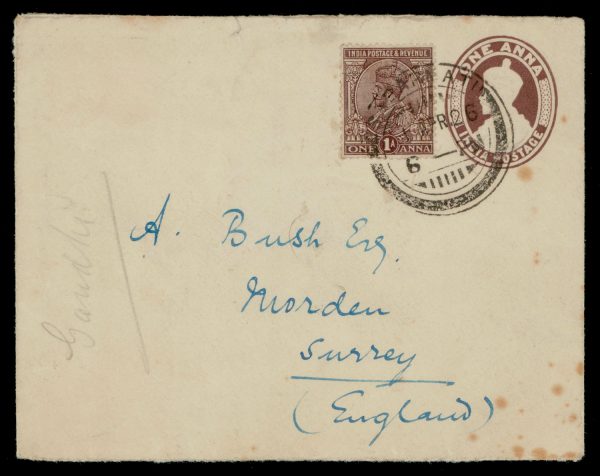 INDIA POSTAGE & REVENUE
ONE 1A ANNA
ONE ANNA
INDIA POSTAGE
APR 26
6
A. Bush Esq.
Morden
Surrey
(England)
Gandhi